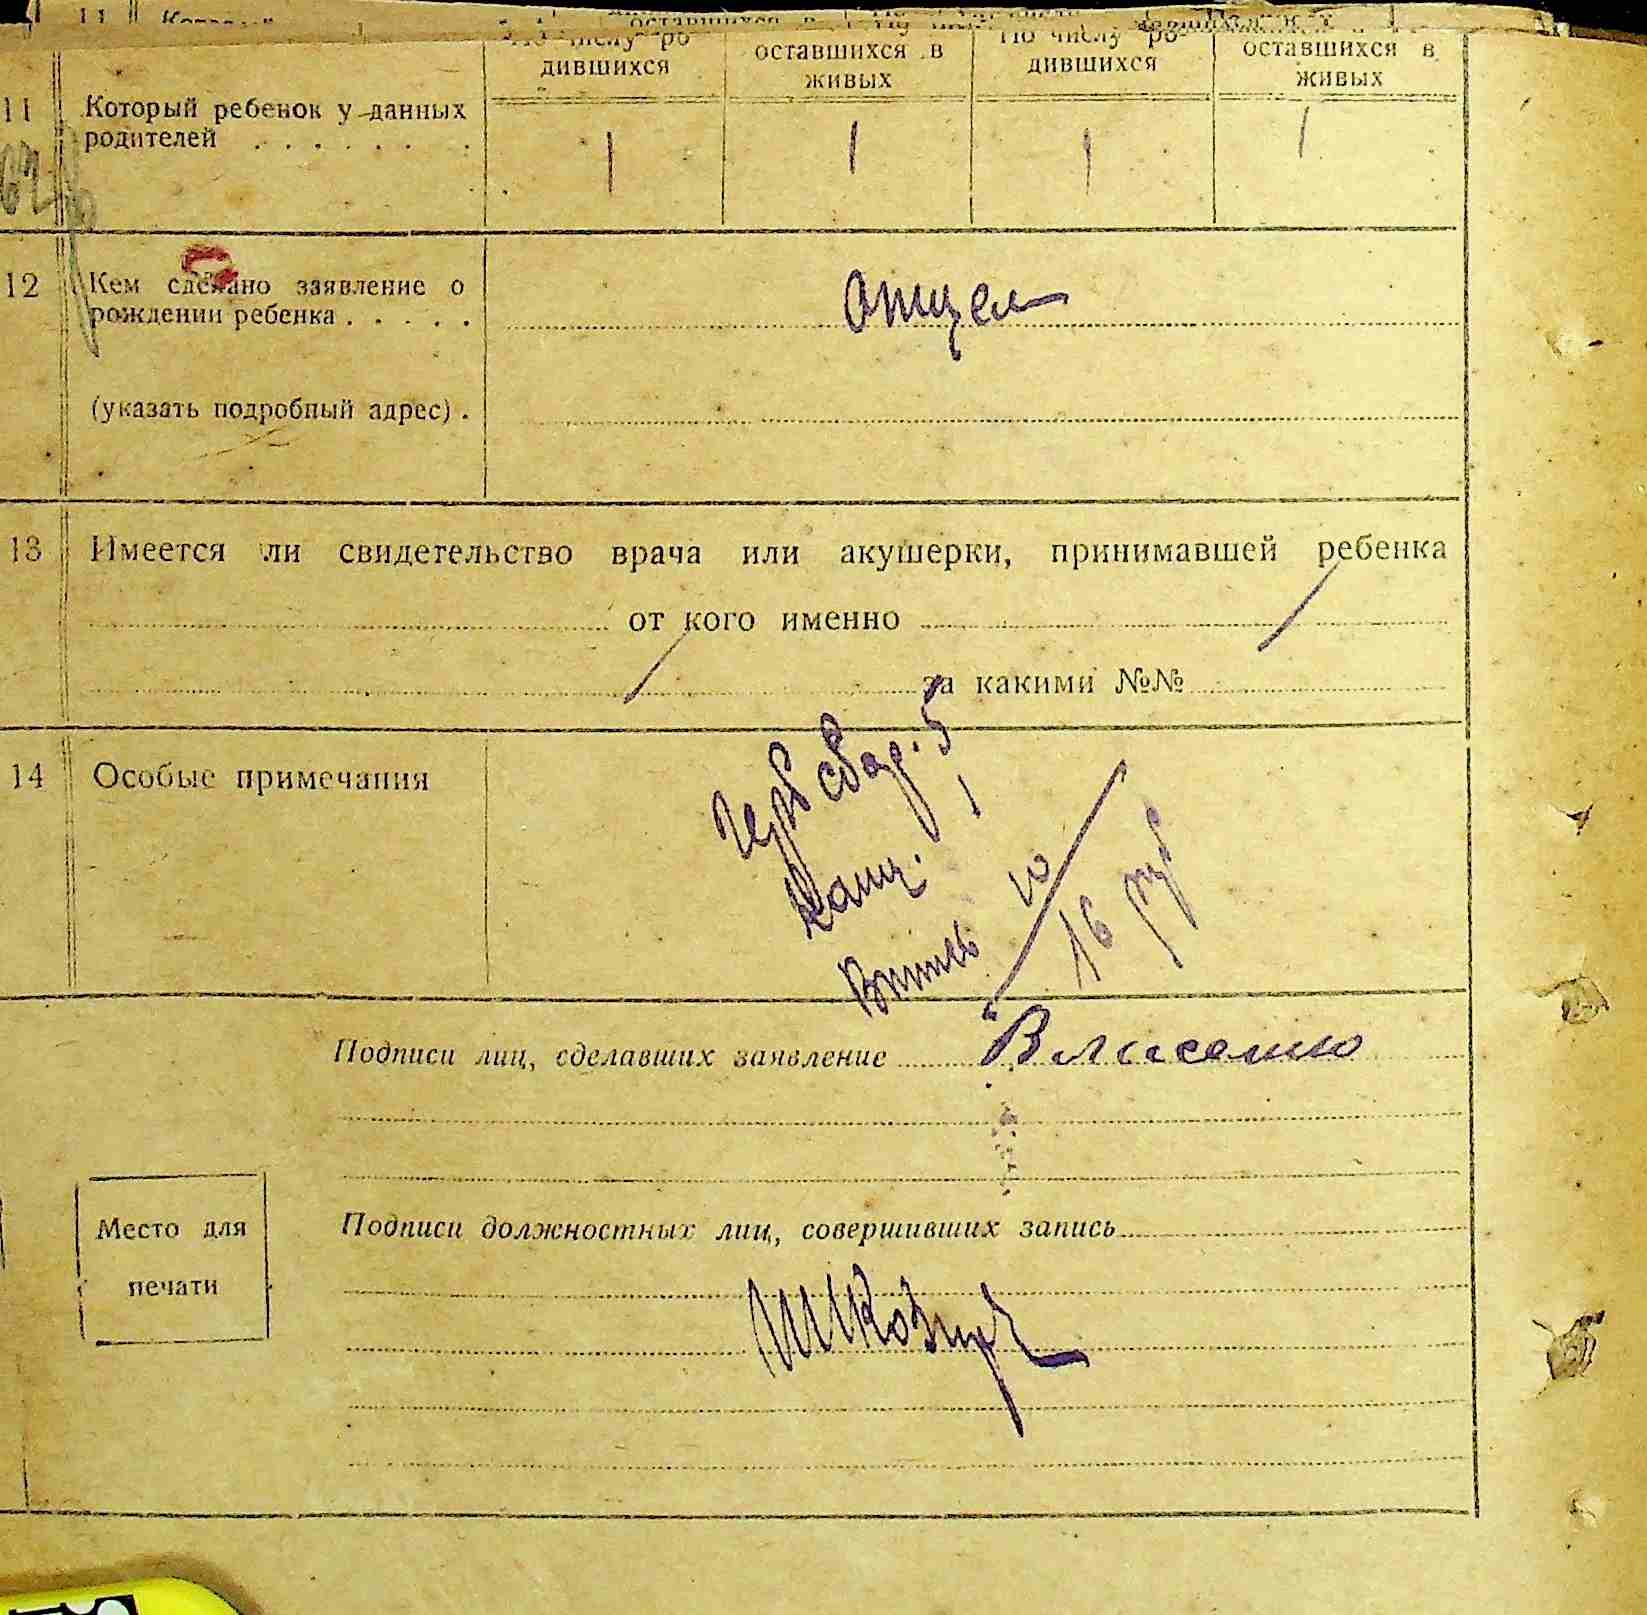 По числу ро- оставшихся в По числу ро- оставшихся в
дившихся живых дившихся живых
11 Который ребенок у данных
родителей . . . . . . . 1 1 1 1
12 Кем сделано заявление о
рождении ребенка . . . . . Отцем
(указать подробный адрес) .
13 Имеется ли свидетельство врача или акушерки, принимавшей ребенка
от кого именно
за какими №№
14 Особые примечания
5
Канц. 1
10
16 руб
Подписи лиц, сделавших заявление
Подписи должностных лиц, совершивших запись
Место для
печати